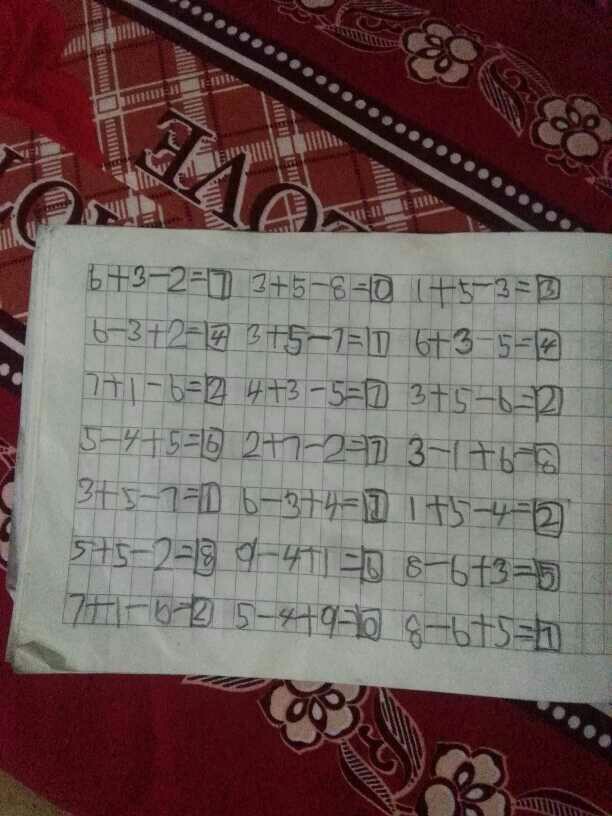 LOVE
LOVE
6+3-2=7 3+5-8=0 1+5-3=3
6-3+2=4 3+5-7=1 6+3-5=4
7+1-6=2 4+3-5=7 3+5-6=2
5-4+5=6 2+7-2=7 3-1+6=8
3+5-7=1 6-3+4=7 1+5-4=2
5+5-2=8 9-4+1=6 8-6+3=5
7+1-6=2 5-4+9=10 8-6+5=7